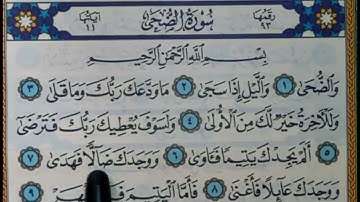 رقمها ٩٣ سُورَةُ الضُّحَى آياتها ١١
بِسْمِ اللَّهِ الرَّحْمَٰنِ الرَّحِيمِ
وَالضُّحَىٰ ١ وَاللَّيْلِ إِذَا سَجَىٰ ٢ مَا وَدَّعَكَ رَبُّكَ وَمَا قَلَىٰ ٣
وَلَلْآخِرَةُ خَيْرٌ لَّكَ مِنَ الْأُولَىٰ ٤ وَلَسَوْفَ يُعْطِيكَ رَبُّكَ فَتَرْضَىٰ
٥ أَلَمْ يَجِدْكَ يَتِيمًا فَآوَىٰ ٦ وَوَجَدَكَ ضَالًّا فَهَدَىٰ ٧
وَوَجَدَكَ عَائِلًا فَأَغْنَىٰ ٨ فَأَمَّا الْيَتِيمَ ٩